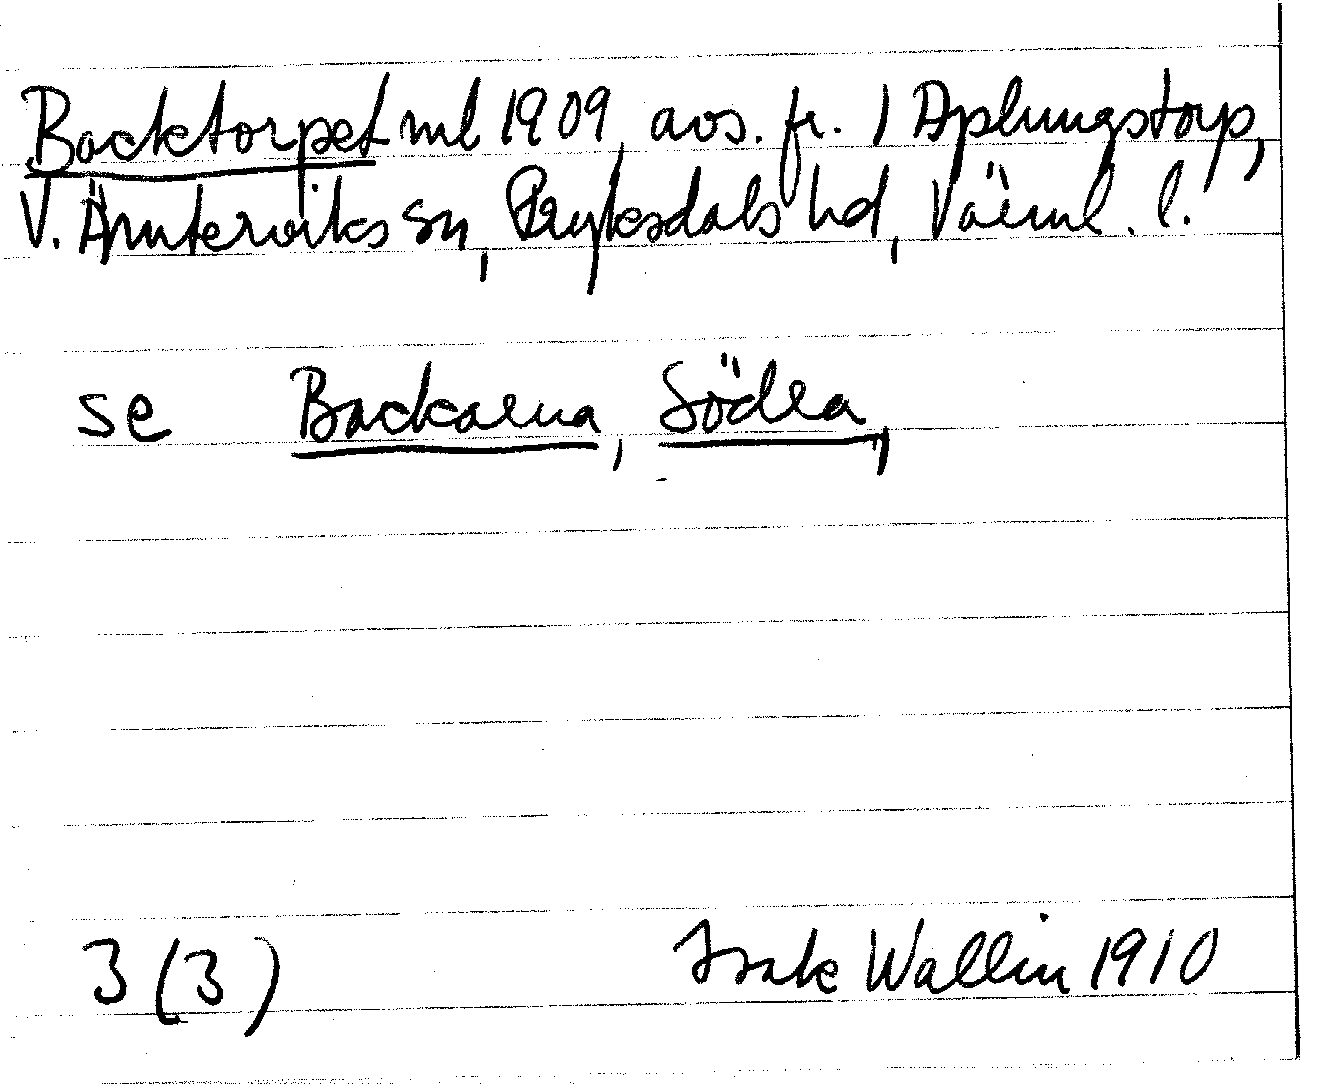 Backtorpet ml 1909, avs. fr. 1 Aplungstorp,
V. Ämterviks sn, Fryksdals hd, Värml. l.
se Backarna, Södra,
3 (3) Isak Wallin 1910